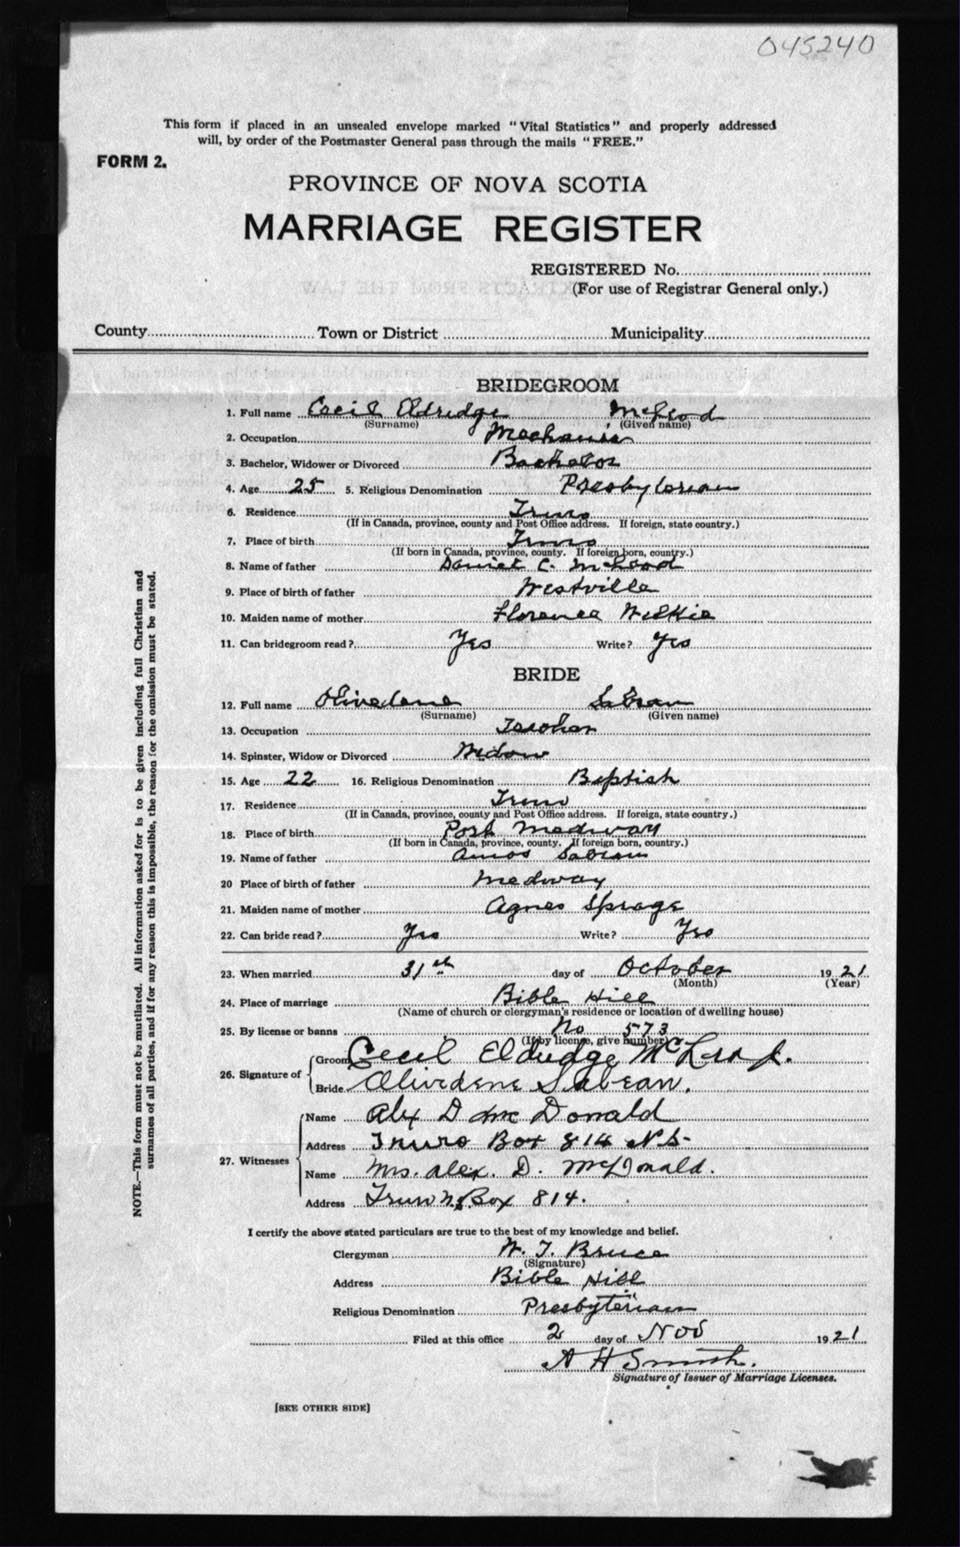 045240
This form if placed in an unsealed envelope marked "Vital Statistics" and properly addressed
will, by order of the Postmaster General pass through the mails "FREE."
FORM 2.
PROVINCE OF NOVA SCOTIA
MARRIAGE REGISTER
REGISTERED No.
(For use of Registrar General only.)
County Town or District Municipality
BRIDEGROOM
1. Full name Cecil Eldridge McLeod
(Surname) (Given name)
2. Occupation Mechanic
3. Bachelor, Widower or Divorced Bachelor
4. Age 25 5. Religious Denomination Presbyterian
6. Residence Truro
(If in Canada, province, county and Post Office address. If foreign, state country.)
7. Place of birth Truro
(If born in Canada, province, county. If foreign born, country.)
8. Name of father Daniel C. McLeod
9. Place of birth of father Westville
10. Maiden name of mother Florence Wilkie
11. Can bridegroom read? Yes Write? Yes
BRIDE
12. Full name Olivedene Sabean
(Surname) (Given name)
13. Occupation Teacher
14. Spinster, Widow or Divorced Widow
15. Age 22 16. Religious Denomination Baptist
17. Residence Truro
(If in Canada, province, county and Post Office address. If foreign, state country.)
18. Place of birth Port Medway
(If born in Canada, province, county. If foreign born, country.)
19. Name of father Amos Sabean
20 Place of birth of father Medway
21. Maiden name of mother Agnes Sprage
22. Can bride read? Yes Write? Yes
23. When married 31st day of October 1921
(Month) (Year)
24. Place of marriage Bible Hill
(Name of church or clergyman's residence or location of dwelling house)
25. By license or banns No 573
(If by license, give number)
26. Signature of Groom Cecil Eldridge McLeod.
Bride Olivedene Sabean.
27. Witnesses Name Alex D McDonald
Address Truro Box 814 N.S.
Name Mrs. Alex. D. McDonald.
Address Truro N.S. Box 814.
I certify the above stated particulars are true to the best of my knowledge and belief.
Clergyman W. T. Bruce
(Signature)
Address Bible Hill
Religious Denomination Presbyterian
Filed at this office 2 day of Nov 1921
A H Smith.
Signature of Issuer of Marriage Licenses.
[SEE OTHER SIDE]
NOTE.—This form must not be mutilated. All information asked for is to be given including full Christian and
surnames of all parties, and if for any reason this is impossible, the reason for the omission must be stated.